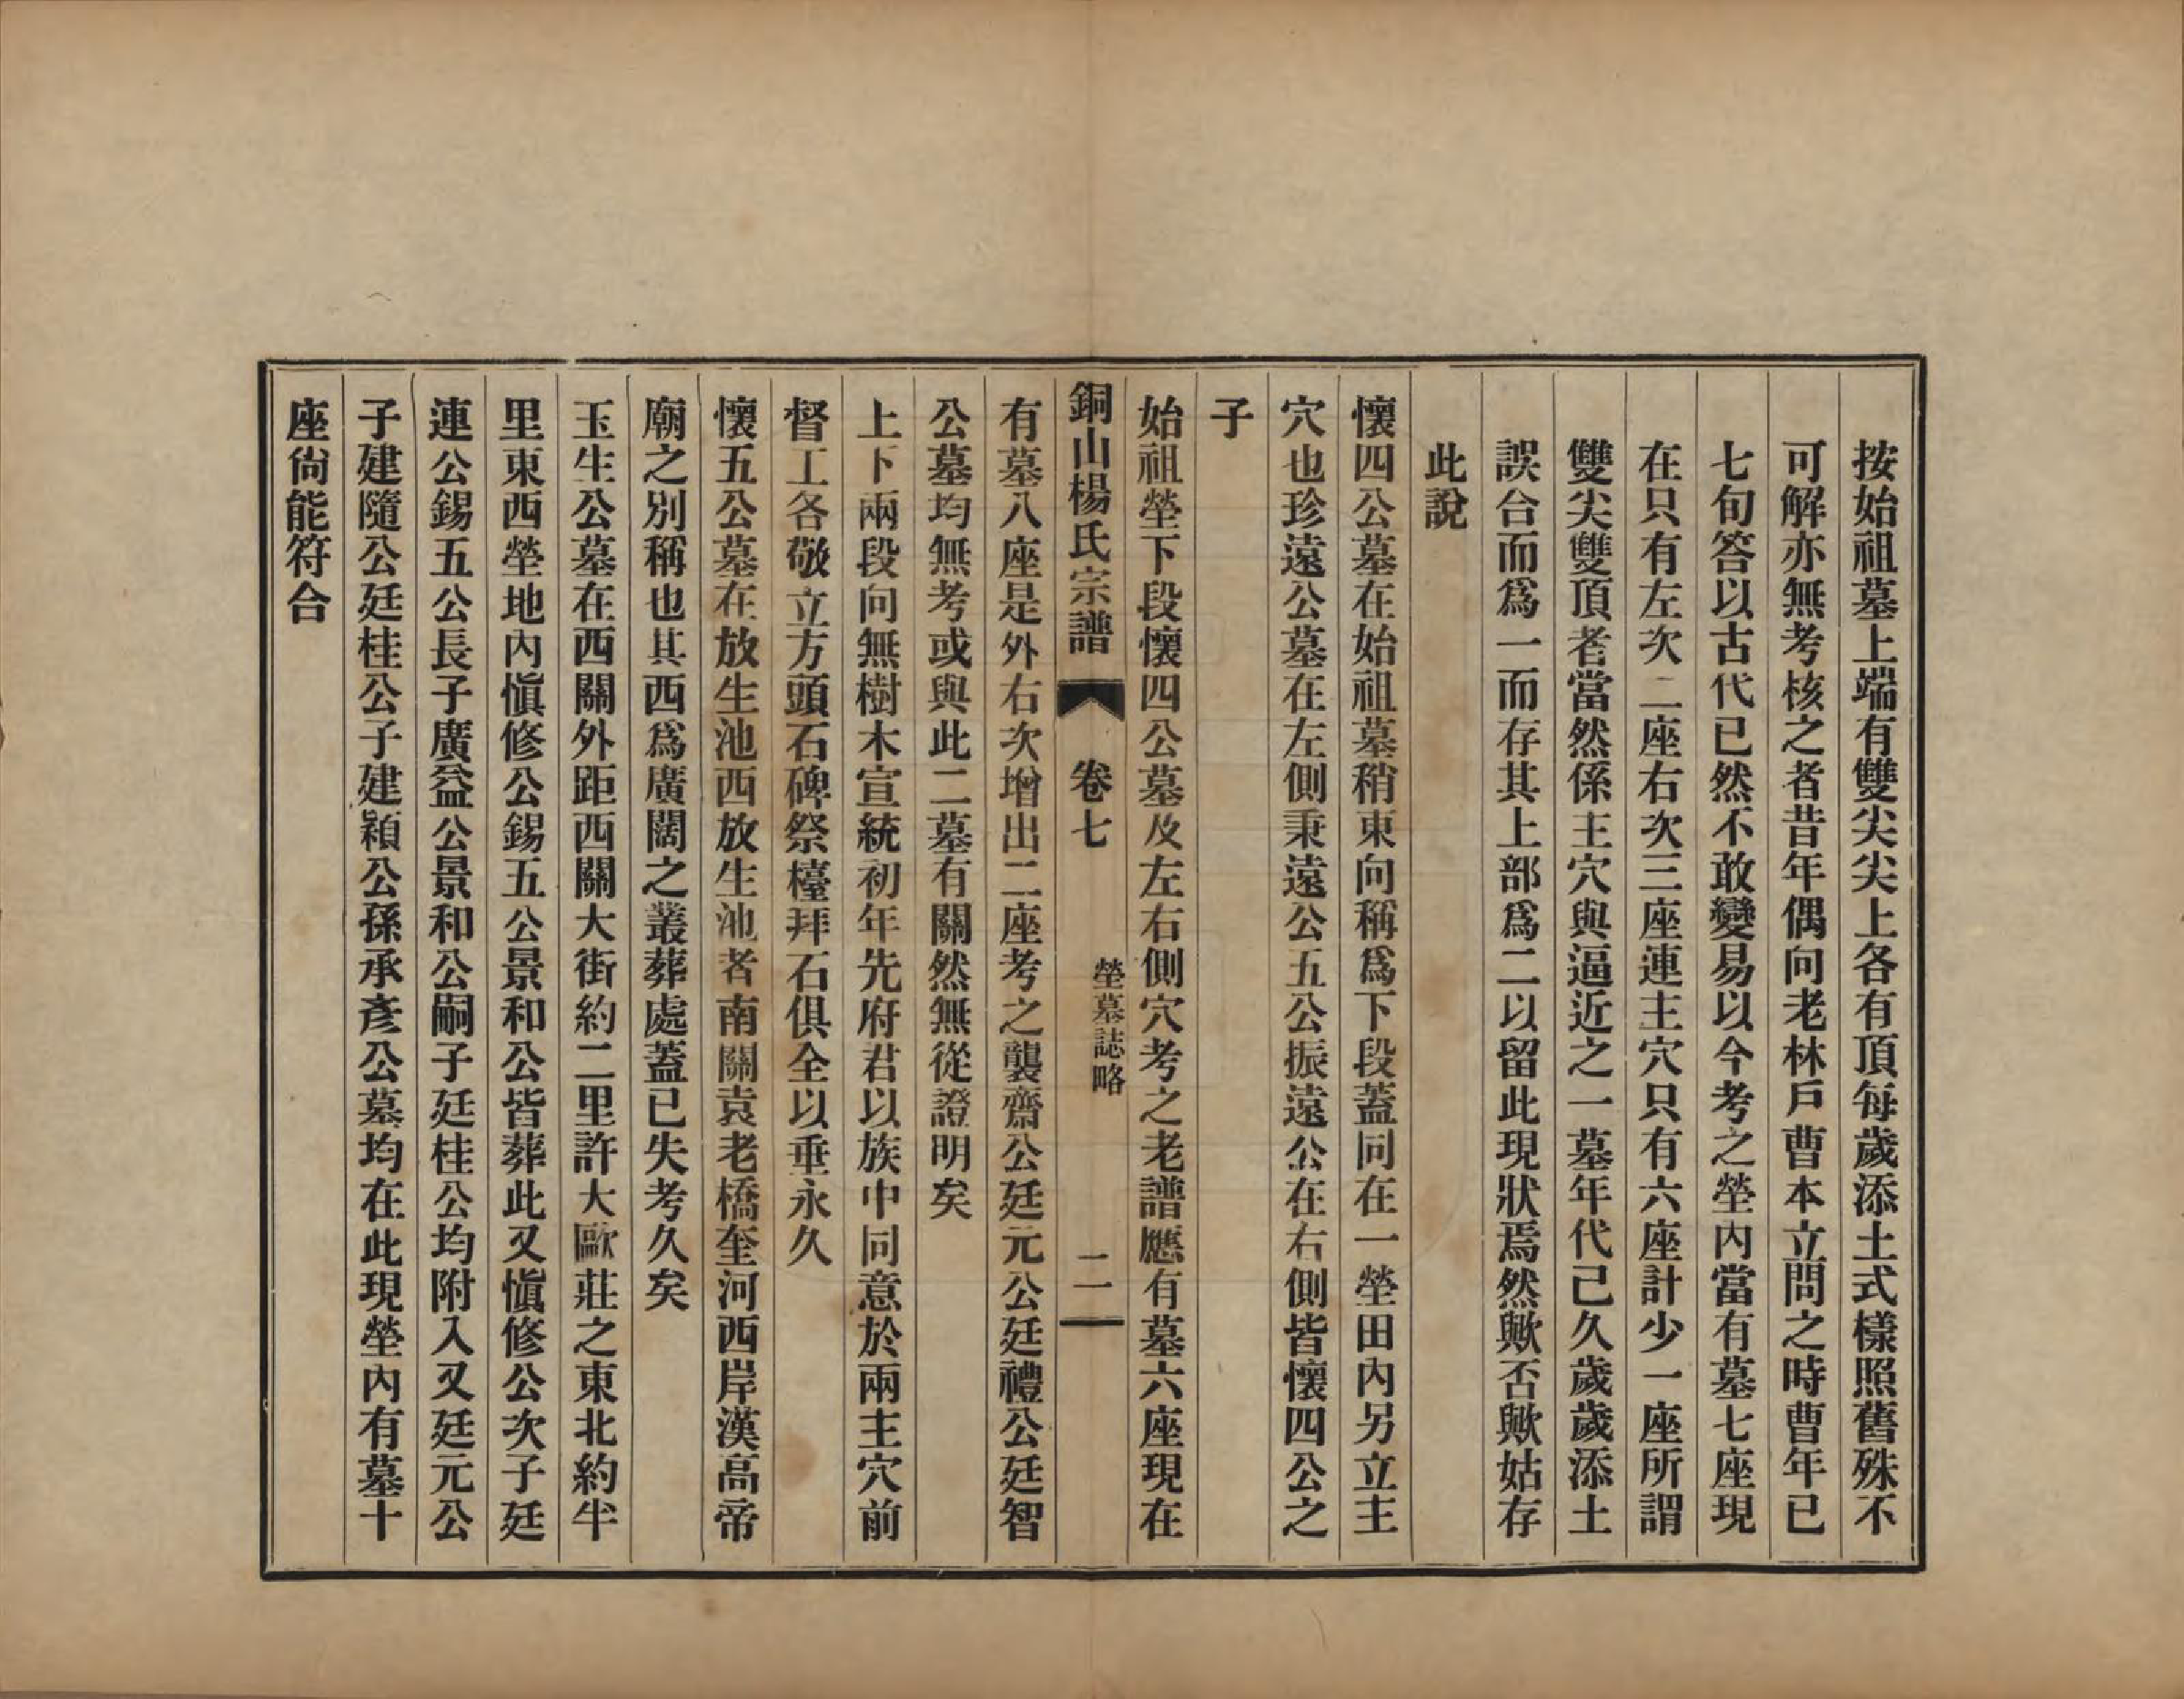 按始祖墓上端有雙尖尖上各有頂每歲添土式樣照舊殊不
可解亦無考核之者昔年偶向老林戶曹本立問之時曹年已
七旬答以古代已然不敢變易以今考之塋內當有墓七座現
在只有左次二座右次三座連主穴只有六座計少一座所謂
雙尖雙頂者當然係主穴與逼近之一墓年代已久歲歲添土
誤合而爲一而存其上部爲二以留此現狀焉然歟否歟姑存
此說
懷四公墓在始祖墓稍東向稱爲下段蓋同在一塋田內另立主
穴也珍遠公墓在左側秉遠公五公振遠公在右側皆懷四公之
子
始祖塋下段懷四公墓及左右側穴考之老譜應有墓六座現在
銅山楊氏宗譜 卷七 塋墓誌略 二
有墓八座是外右次增出二座考之襲齋公廷元公廷禮公廷智
公墓均無考或與此二墓有關然無從證明矣
上下兩段向無樹木宣統初年先府君以族中同意於兩主穴前
督工各敬立方頭石碑祭檯拜石俱全以垂永久
懷五公墓在放生池西放生池者南關袁老橋奎河西岸漢高帝
廟之別稱也其西爲廣闊之叢葬處蓋已失考久矣
玉生公墓在西關外距西關大街約二里許大歐莊之東北約半
里東西塋地內愼修公錫五公景和公皆葬此又愼修公次子廷
連公錫五公長子廣益公景和公嗣子廷桂公均附入又廷元公
子建隨公廷桂公子建穎公孫承彥公墓均在此現塋內有墓十
座尙能符合